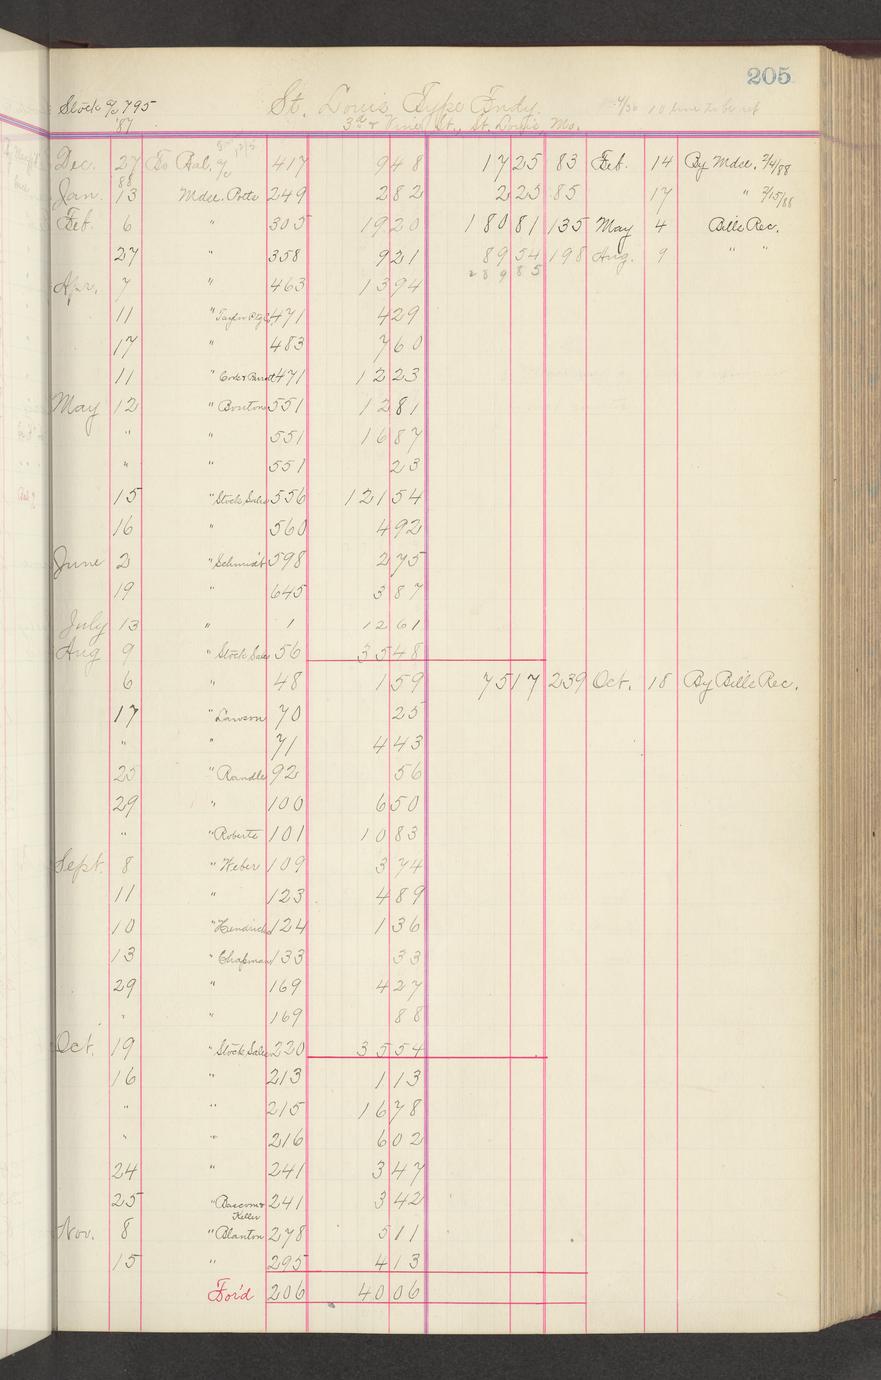 205
Stock a/c 795 St. Louis Type Fndy.
'87 3rd & Vine St., St. Louis, Mo.
Dec. 27 To Bal. a/c 417 9 48 17 25 83 Feb. 14 By Mdse. 2/4/88
88
Jan. 13 Mdse. Potts 249 2 82 2 25 85 17 " 2/15/88
Feb. 6 " 305 19 20 180 81 135 May 4 Bills Rec.
27 " 358 9 21 89 54 198 Aug. 9 " "
289 85
Apr. 7 " 463 13 94
11 " 471 4 29
17 " 483 7 60
11 " 471 12 23
May 12 " Bouton 551 12 81
" " 551 16 87
" " 551 23
15 " Stock Sales 556 121 54
16 " 560 4 92
June 2 " Schmidt 598 2 75
19 " 645 3 87
July 13 " 1 12 61
Aug 9 " Stock Sales 56 35 48
6 " 48 1 59 75 17 239 Oct. 18 By Bills Rec.
17 " Lawson 70 25
" " 71 4 43
25 " Randle 92 56
29 " 100 6 50
" " Roberts 101 10 83
Sept. 8 " Weber 109 3 74
11 " 123 4 89
10 " Hendricks 124 1 36
13 " Chapman 133 33
29 " 169 4 27
" " 169 88
Oct. 19 " Stock Sales 220 35 54
16 " 213 1 13
" " 215 16 78
" " 216 6 02
24 " 241 3 47
25 " Bascom & 241 3 42
Keller
Nov. 8 " Blanton 278 5 11
15 " 295 4 13
For'd 206 40 06